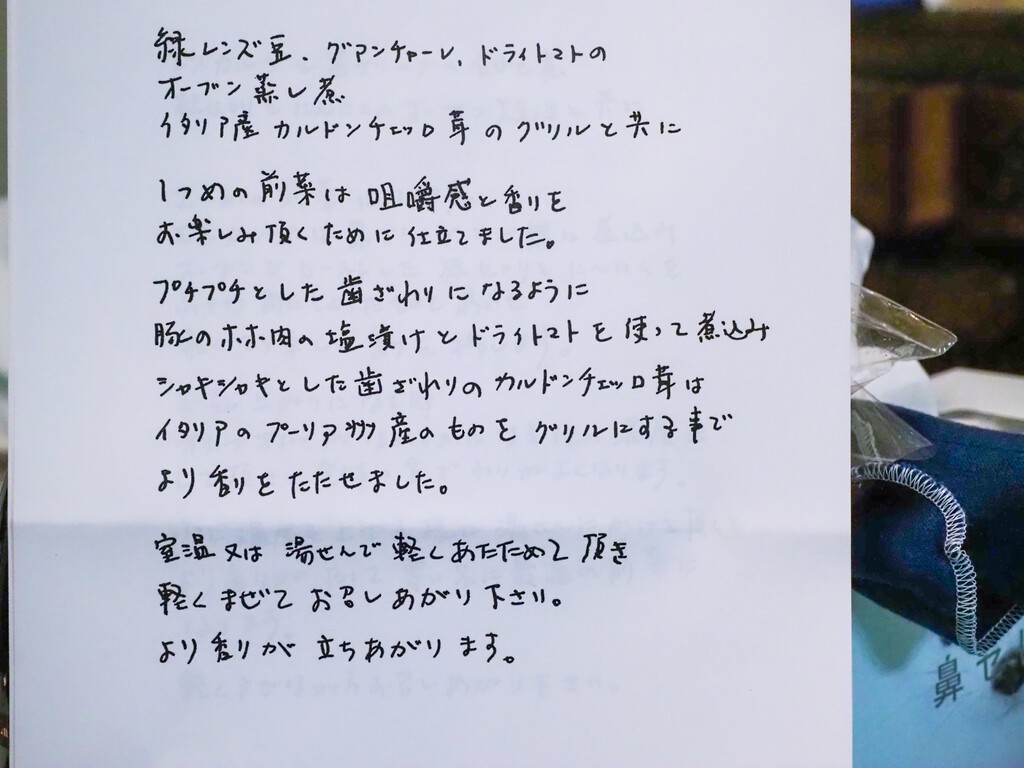 緑レンズ豆、グアンチャーレ、ドライトマトの
オーブン蒸し煮
イタリア産カルドンチェッロ茸のグリルと共に
1つめの前菜は咀嚼感と香りを
お楽しみ頂くために仕立てました。
プチプチとした歯ざわりになるように
豚のホホ肉の塩漬けとドライトマトを使って煮込み
シャキシャキとした歯ざわりのカルドンチェッロ茸は
イタリアのプーリア州産のものをグリルにする事で
より香りをたたせました。
室温又は湯せんで軽くあたためて頂き
軽くまぜてお召しあがり下さい。
より香りが立ちあがります。
鼻セレ